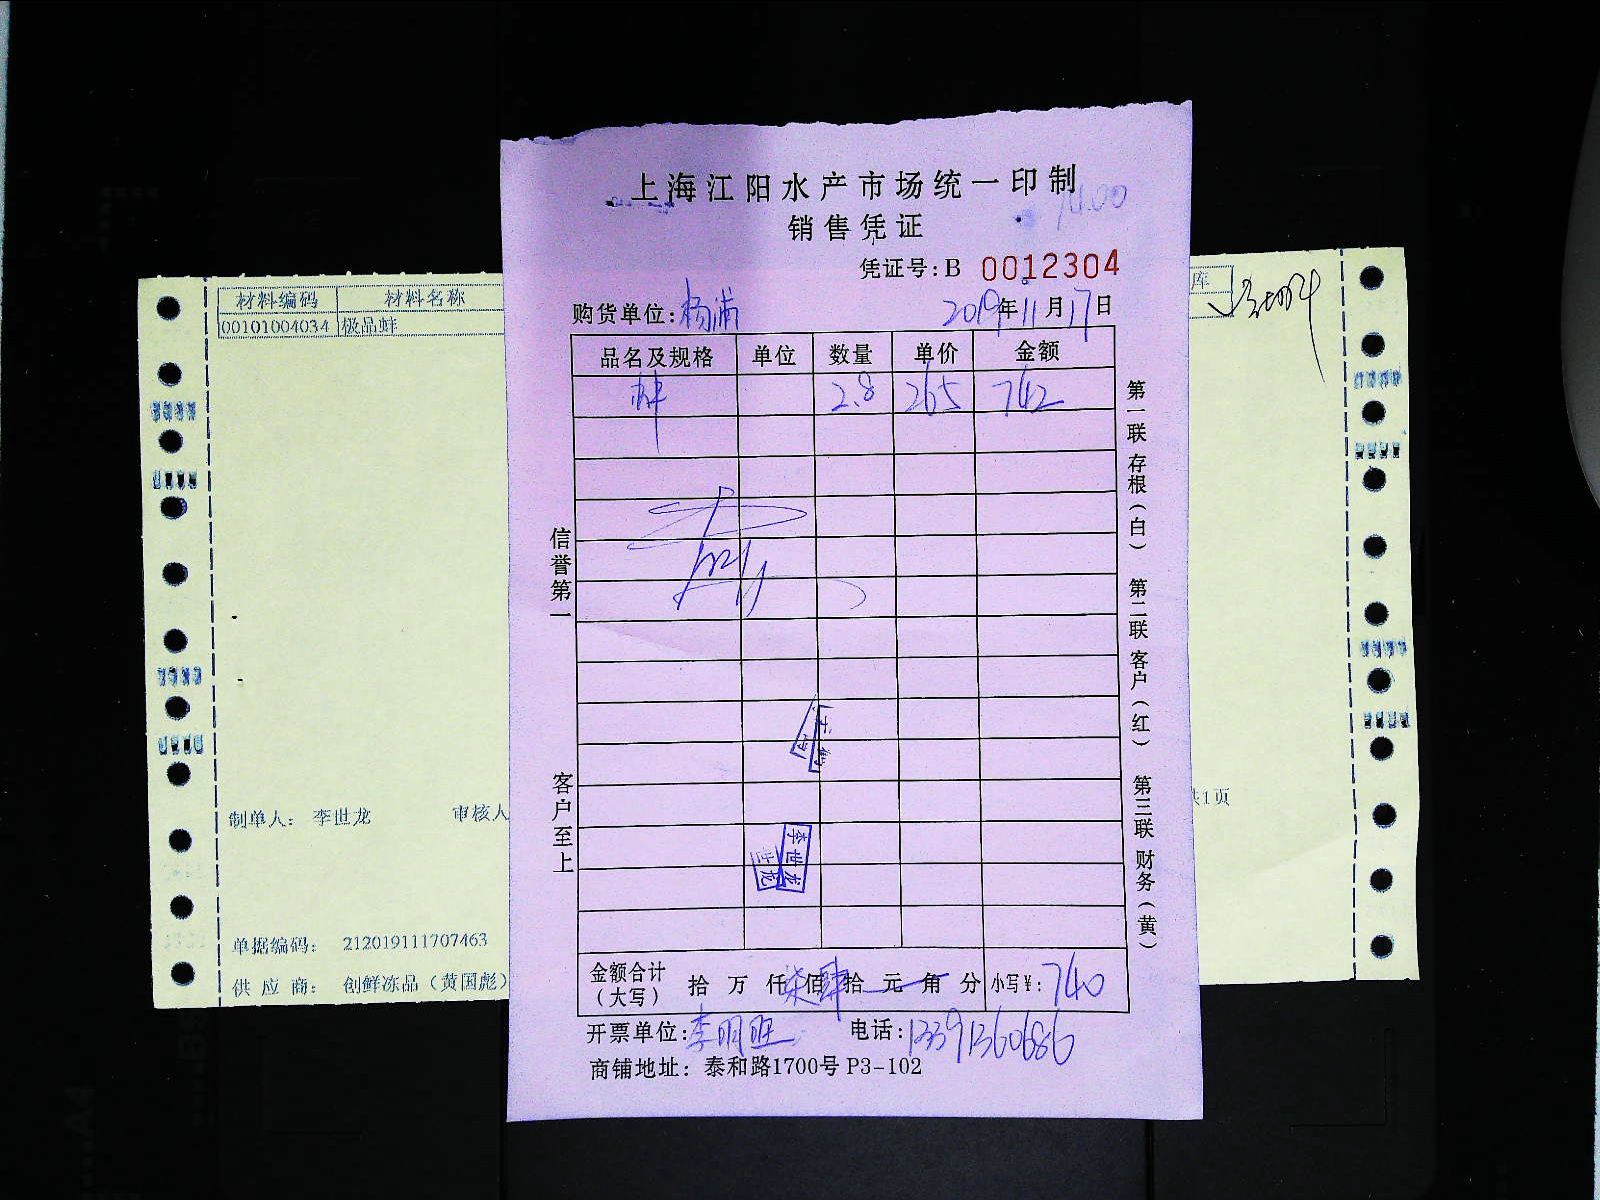 上海江阳水产市场统一印制
销售凭证
凭证号:B 0012304
购货单位:杨浦 2019年11月17日
品名及规格 单位 数量 单价 金额
蚌 2.8 265 742
第一联 存根（白） 第二联 客户（红） 第三联 财务（黄）
信誉第一 客户至上
李世龙
世龙
金额合计（大写） 拾 万 仟 柒佰肆拾 元 角 分 小写¥: 740
开票单位:李明旺 电话:13391360686
商铺地址：泰和路1700号 P3-102
材料编码 材料名称
00101004034 极品蚌
库
制单人： 李世龙 审核人
共1页
单据编码： 212019111707463
供应商： 创鲜冻品（黄国彪）